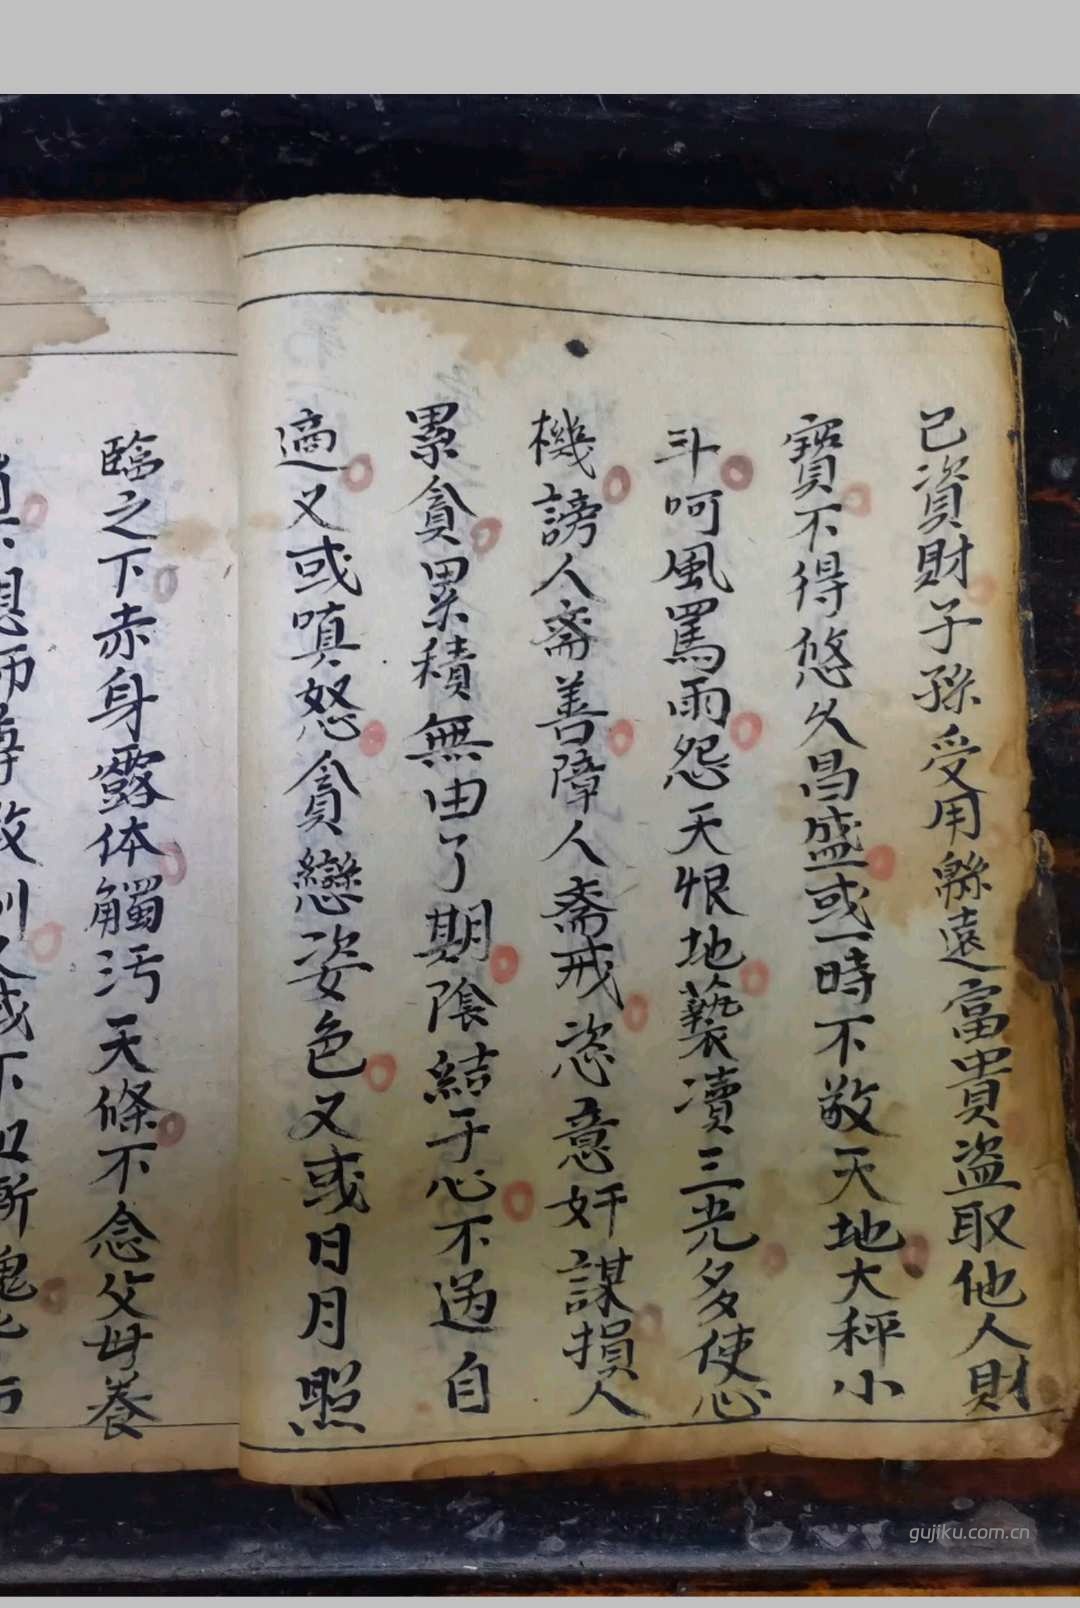 己資財子孫受用緜遠富貴盜取他人財
寶不得悠久昌盛或一時不敬天地大秤小
斗呵風罵雨怨天恨地褻瀆三光多使心
機謗人齋善障人齋戒恣意奸謀損人
累貪累積無由了期陰結于心不過自
適又或嗔怒貪戀姿色又或日月照
臨之下赤身露体觸汚天條不念父母養
gujiku.com.cn